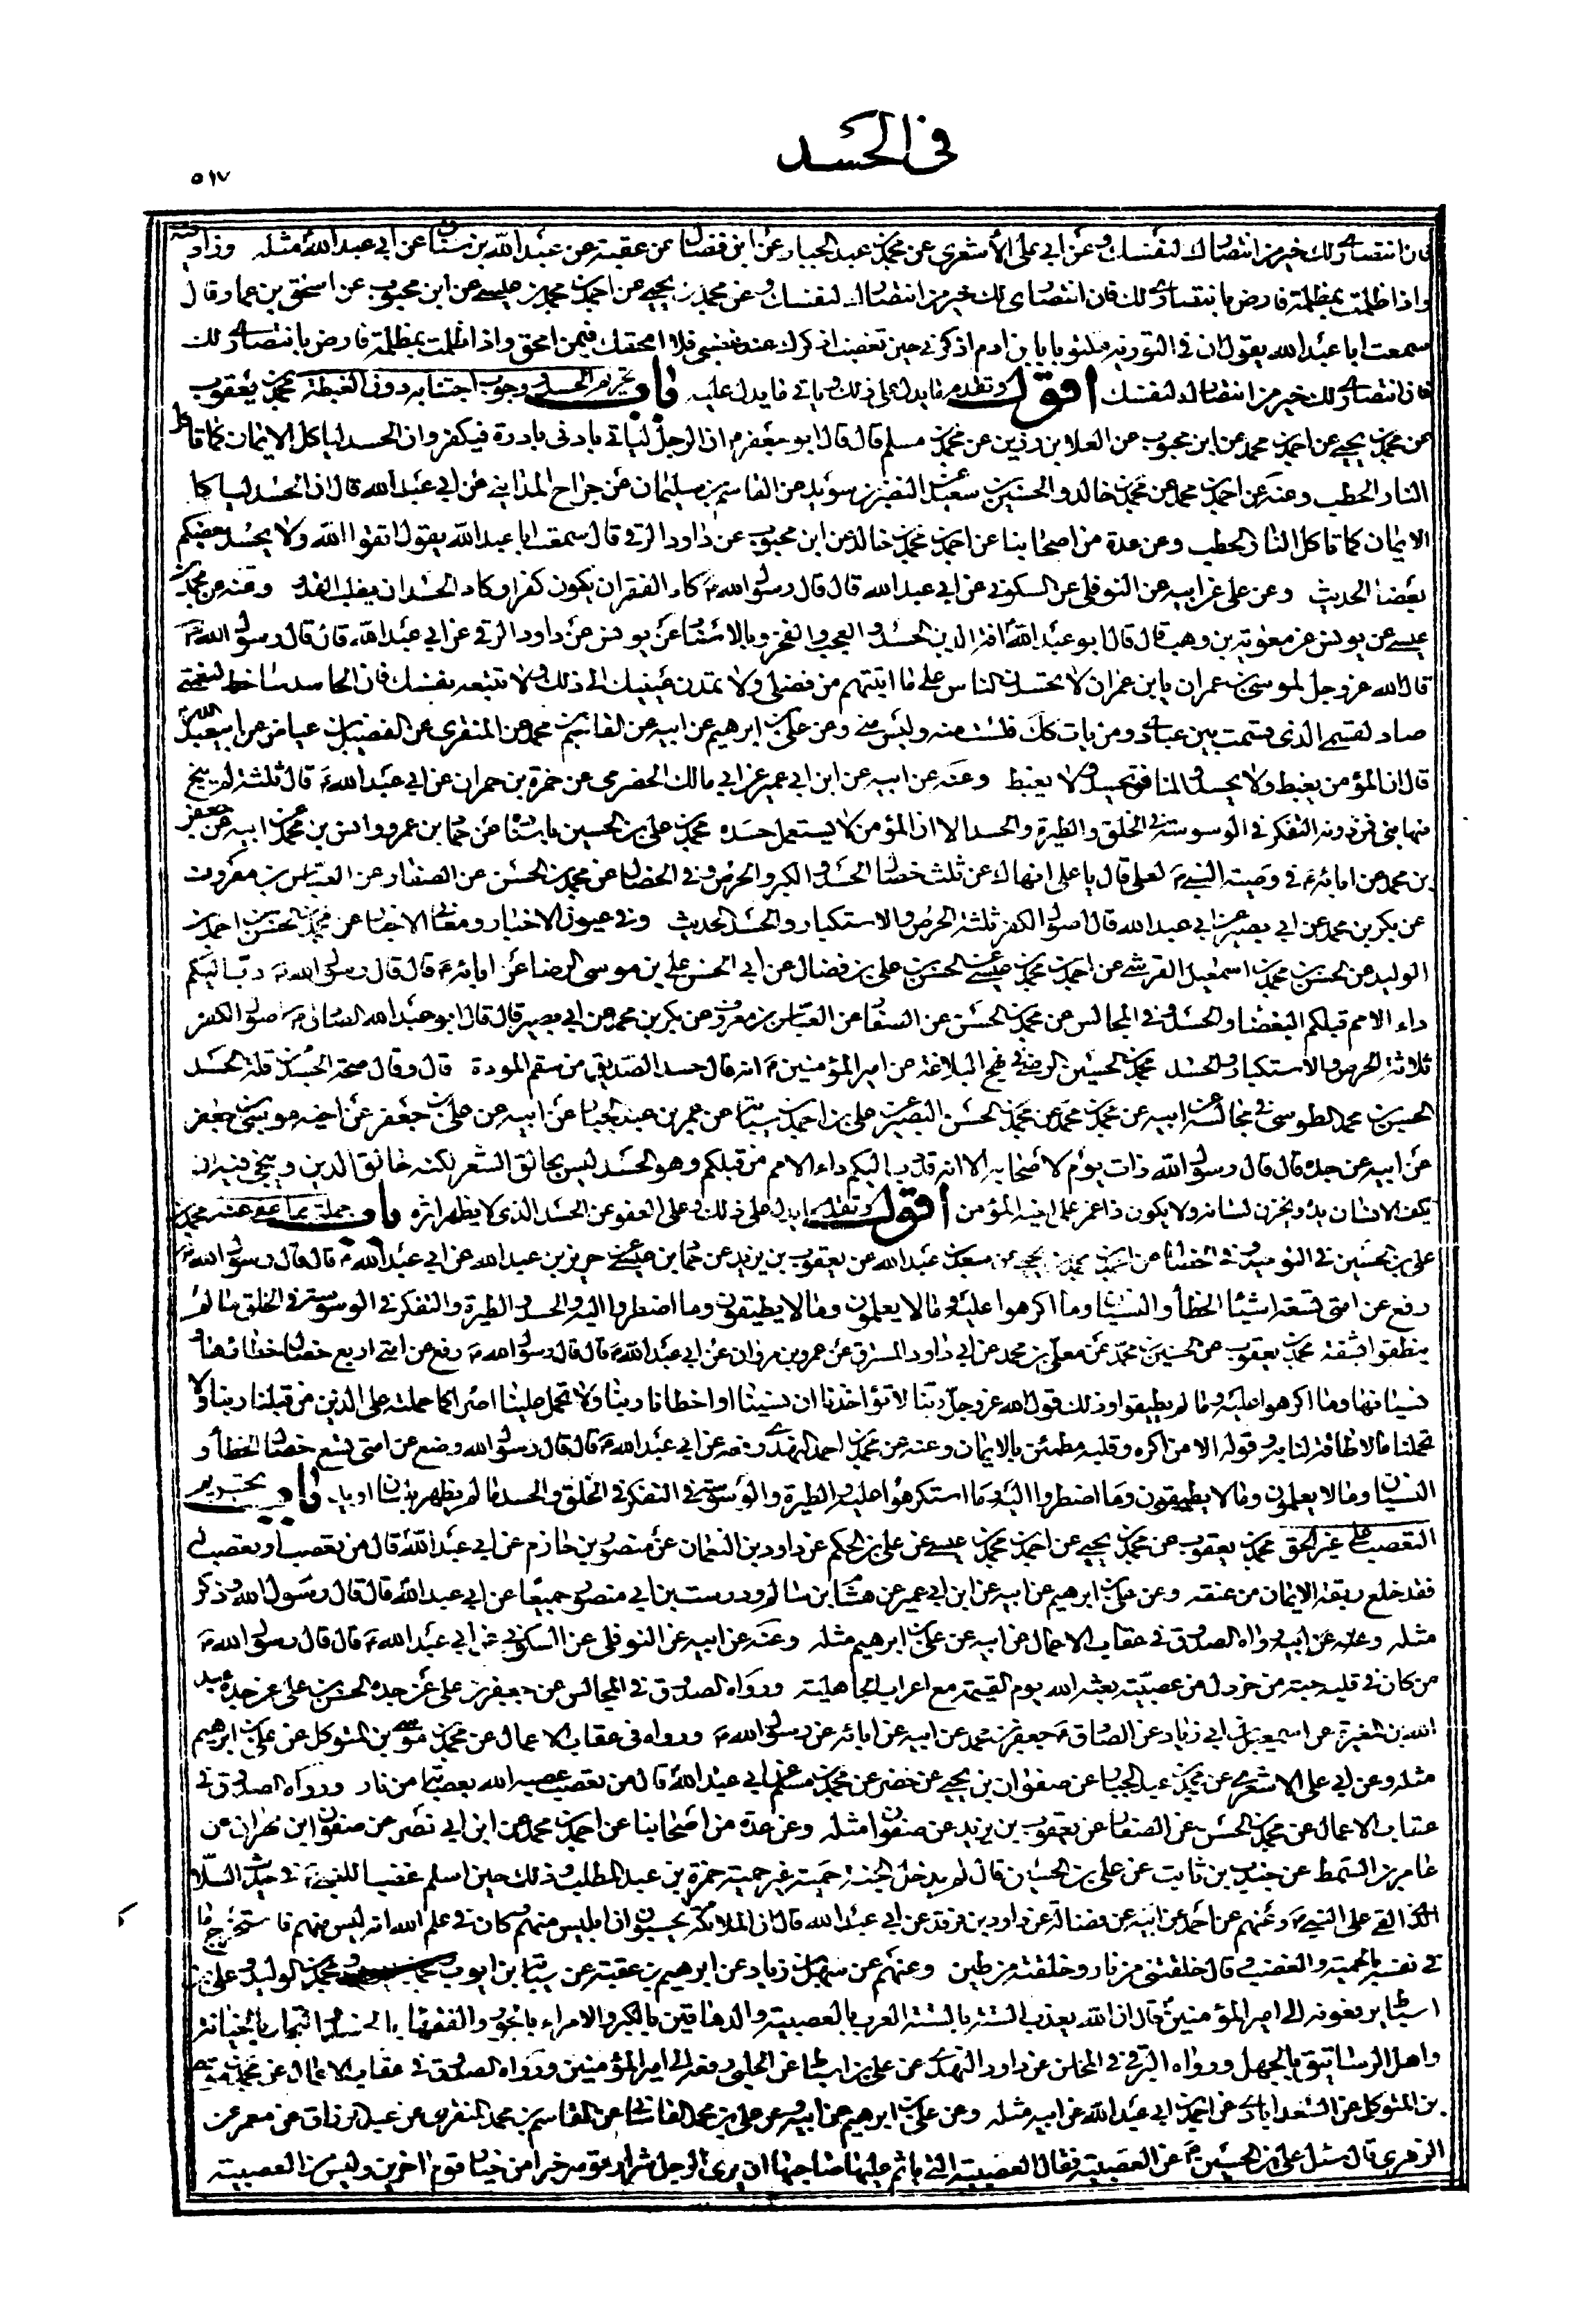 في الحسد
٥١٧
فان انتصارى لك خير من انتصارك لنفسك وعن ابى على الأشعرى عن محمد بن عبد الجبار عن ابن فضال عن عقبة عن عبد الله بن سنان عن ابى عبد الله مثله وزاد فيه
واذا ظلمت بمظلمة فارض بانتصارى لك فان انتصارى لك خير من انتصارك لنفسك وعن محمد بن يحيى عن احمد بن محمد بن عيسى عن ابن محبوب عن اسحق بن عمار قال
سمعت ابا عبد الله يقول ان فى التورية مكتوبا يا بن ادم اذكرنى حين تغضب اذكرك عند غضبى فلا امحقك فيمن امحق واذا ظلمت بمظلمة فارض بانتصارى لك
فان انتصارى لك خير من انتصارك لنفسك اقول وتقدم ما يدل على ذلك وياتى ما يدل عليه باب تحريم الحسد ووجوب اجتنابه دون الغبطة محمد بن يعقوب
عن محمد بن يحيى عن احمد بن محمد عن ابن محبوب عن العلا بن رزين عن محمد بن مسلم قال قال ابو جعفر ان الرجل لياتى بادنى بادرة فيكفر وان الحسد لياكل الايمان كما تاكل
النار الحطب وعنه عن احمد بن محمد عن محمد بن خالد والحسين بن سعيد عن النضر بن سويد عن القاسم بن سليمان عن جراح المداينى عن ابى عبد الله قال ان الحسد لياكل
الايمان كما تاكل النار الحطب وعن عدة من اصحابنا عن احمد بن محمد بن خالد عن ابن محبوب عن داود الرقى قال سمعت ابا عبد الله يقول اتقوا الله ولا يحسد بعضكم
بعضا الحديث وعن على عن ابيه عن النوفلى عن السكونى عن ابى عبد الله قال قال رسول الله كاد الفقر ان يكون كفرا وكاد الحسد ان يغلب القدر وعنه عن محمد بن
عيسى عن يونس عن معوية بن وهب قال قال ابو عبد الله افة الدين الحسد والعجب والفخر وبالاسناد عن يونس عن داود الرقى عن ابى عبد الله قال قال رسول الله
قال الله عز وجل لموسى بن عمران يا بن عمران لا تحسدن الناس على ما اتيتهم من فضلى ولا تمدن عينيك الى ذلك ولا تتبعه نفسك فان الحاسد ساخط لنعمتى
صاد لقسمى الذى قسمت بين عبادى ومن يك كذلك فلست منه وليس منى وعن على بن ابرهيم عن ابيه عن القاسم بن محمد عن المنقرى عن الفضيل بن عياض عن ابى عبد الله
قال ان المؤمن يغبط ولا يحسد والمنافق يحسد ولا يغبط وعنه عن ابيه عن ابن ابى عمير عن ابى مالك الحضرمى عن حمزة بن حمران عن ابى عبد الله قال ثلثة لم ينج
منها نبى فمن دونه التفكر فى الوسوسة فى الخلق والطيرة والحسد الا ان المؤمن لا يستعمل حسده محمد بن على بن الحسين باسناده عن حماد بن عمرو وانس بن محمد عن ابيه عن جعفر
بن محمد عن ابائه فى وصية النبى لعلى قال يا على انهاك عن ثلث خصال الحسد والكبر والحرص وفى الخصال عن محمد بن الحسن عن الصفار عن العباس بن معروف
عن بكر بن محمد عن ابى بصير عن ابى عبد الله قال اصول الكفر ثلثة الحرص والاستكبار والحسد الحديث وفى عيون الاخبار ومعانى الاخبار عن محمد بن الحسن بن احمد بن
الوليد عن الحسن بن محمد بن اسمعيل القرشى عن احمد بن محمد بن عيسى عن الحسن بن على بن فضال عن ابى الحسن على بن موسى الرضا عن ابائه قال قال رسول الله دب اليكم
داء الامم قبلكم البغضاء والحسد وفى المجالس عن محمد بن الحسن عن الصفار عن العباس بن معروف عن بكر بن محمد عن ابى بصير قال قال ابو عبد الله الصادق اصول الكفر
ثلاثة الحرص والاستكبار والحسد محمد بن الحسين الرضى فى نهج البلاغة عن امير المؤمنين انه قال حسد الصديق من سقم المودة قال وقال صحة الجسد من قلة الحسد
الحسن بن محمد الطوسى فى مجالسه عن ابيه عن محمد بن محمد عن محمد بن الحسن البصير عن على بن احمد بن سيابة عن عمر بن عبد الجبار عن ابيه عن على بن جعفر عن اخيه موسى بن جعفر
عن ابيه عن جده قال قال رسول الله ذات يوم لاصحابه الا انه قد دب اليكم داء الامم من قبلكم وهو الحسد ليس بحالق الشعر لكنه حالق الدين وينجى فيه ان
يكف الانسان يده ويخزن لسانه ولا يكون ذا غمز على اخيه المؤمن اقول وتقدم ما يدل على ذلك وعلى العفو عن الحسد الذى لا يظهر اثره باب جملة مما عفى عنه محمد بن
على بن الحسين فى التوحيد وفى الخصال عن احمد بن محمد بن يحيى عن سعد بن عبد الله عن يعقوب بن يزيد عن حماد بن عيسى عن حريز بن عبد الله عن ابى عبد الله قال قال رسول الله
رفع عن امتى تسعة اشياء الخطأ والنسيان وما اكرهوا عليه وما لا يعلمون وما لا يطيقون وما اضطروا اليه والحسد والطيرة والتفكر فى الوسوسة فى الخلق ما لم
ينطقوا بشفة محمد بن يعقوب عن الحسين بن محمد عن معلى بن محمد عن ابى داود المسترق عن عمرو بن مروان عن ابى عبد الله قال قال رسول الله رفع عن امتى اربع خصال خطاؤها و
نسيانها وما اكرهوا عليه وما لم يطيقوا وذلك قول الله عز وجل ربنا لا تؤاخذنا ان نسينا او اخطانا ربنا ولا تحمل علينا اصرا كما حملته على الذين من قبلنا ربنا ولا
تحملنا ما لا طاقة لنا به وقوله الا من اكره وقلبه مطمئن بالايمان وعنه عن محمد بن احمد النهدى رفعه عن ابى عبد الله قال قال رسول الله وضع عن امتى تسع خصال الخطأ و
النسيان وما لا يعلمون وما لا يطيقون وما اضطروا اليه وما استكرهوا عليه والطيرة والوسوسة فى التفكر فى الخلق والحسد ما لم يظهر بلسان او يد باب تحريم
التعصب على غير الحق محمد بن يعقوب عن محمد بن يحيى عن احمد بن محمد بن عيسى عن على بن الحكم عن داود بن النعمان عن منصور بن حازم عن ابى عبد الله قال من تعصب او تعصب له
فقد خلع ربقة الايمان من عنقه وعن على بن ابرهيم عن ابيه عن ابن ابى عمير عن هشام بن سالم ودرست بن ابى منصور جميعا عن ابى عبد الله قال قال رسول الله وذكر
مثله وعنه عن ابيه ورواه الصدوق فى عقاب الاعمال عن ابيه عن على بن ابرهيم مثله وعنه عن ابيه عن النوفلى عن السكونى عن ابى عبد الله قال قال رسول الله
من كان فى قلبه حبة من خردل من عصبية بعثه الله يوم القيمة مع اعراب الجاهلية ورواه الصدوق فى المجالس عن جعفر بن على عن جده الحسن بن على عن جده عبد
الله بن المغيرة عن اسمعيل بن ابى زياد عن الصادق جعفر بن محمد عن ابيه عن ابائه عن رسول الله ورواه فى عقاب الاعمال عن محمد بن موسى بن المتوكل عن على بن ابرهيم
مثله وعن ابى على الاشعرى عن محمد بن عبد الجبار عن صفوان بن يحيى عن خضر عن محمد بن مسلم عن ابى عبد الله قال من تعصب عصبه الله بعصابة من نار ورواه الصدوق فى
عقاب الاعمال عن محمد بن الحسن عن الصفار عن يعقوب بن يزيد عن صفوان مثله وعن عدة من اصحابنا عن احمد بن محمد عن ابن ابى نصر عن صفوان بن مهران عن
عامر بن السمط عن حبيب بن ثابت عن على بن الحسين قال لم يدخل الجنة حمية غير حمية حمزة بن عبد المطلب وذلك حين اسلم غضبا للنبى فى حديث السلا
الذى القى على النبى وعنهم عن احمد عن ابيه عن فضالة عن داود بن فرقد عن ابى عبد الله قال ان الملائكة يحسبون ان ابليس منهم وكان فى علم الله انه ليس منهم فاستخرج ما
فى نفسه بالحمية والغضب وقال خلقتنى من نار وخلقته من طين وعنهم عن سهل بن زياد عن ابرهيم بن عقبة عن سيابة بن ايوب ومحمد بن الوليد وعلى بن
اسباط يرفعونه الى امير المؤمنين قال ان الله يعذب الستة بالستة العرب بالعصبية والدهاقين بالكبر والامراء بالجور والفقهاء بالحسد والتجار بالخيانة
واهل الرساتيق بالجهل ورواه البرقى فى المحاسن عن داود النهدى عن على بن اسباط عن الحلبى رفعه الى امير المؤمنين ورواه الصدوق فى عقاب الاعمال عن محمد بن موسى
بن المتوكل عن السعدابادى عن احمد بن ابى عبد الله عن ابيه مثله وعن على بن ابرهيم عن ابيه وعن على بن محمد القاسانى عن القاسم بن محمد المنقرى عن عبد الرزاق عن معمر عن
الزهرى قال سئل على بن الحسين عن العصبية فقال العصبية التى ياثم عليها صاحبها ان يرى الرجل شرار قومه خيرا من خيار قوم اخرين وليس من العصبية